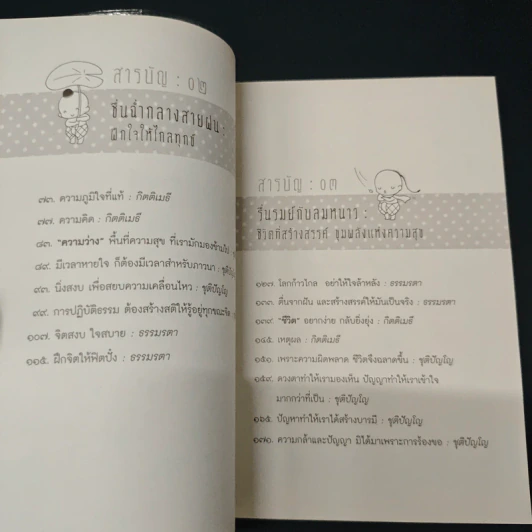 สารบัญ : ๐๒
ชื่นฉ่ำกลางสายฝน :
ฝึกใจให้ไกลทุกข์
๗๓. ความภูมิใจที่แท้ : กิตติเมธี
๗๗. ความคิด : กิตติเมธี
๘๓. "ความว่าง" พื้นที่ความสุข ที่เรามักมองข้ามไป
๘๙. มีเวลาหายใจ ก็ต้องมีเวลาสำหรับภาวนา : ชุติปัญโญ
๙๓. นิ่งสงบ เพื่อสยบความเคลื่อนไหว : ชุติปัญโญ
๙๙. การปฏิบัติธรรม ต้องสร้างสติให้รู้อยู่ทุกขณะจิต
๑๐๗. จิตสงบ ใจสบาย : ธรรมรตา
๑๑๕. ฝึกจิตให้ฟิตปั๋ง : ธรรมรตา
สารบัญ : ๐๓
รื่นรมย์กับลมหนาว :
ชีวิตที่สร้างสรรค์ ขุมพลังแห่งความสุข
๑๒๗. โลกก้าวไกล อย่าให้ใจล้าหลัง : ธรรมรตา
๑๓๓. ตื่นจากฝัน และสร้างสรรค์ให้มันเป็นจริง : ธรรมรตา
๑๓๙. "ชีวิต" อยากง่าย กลับยิ่งยุ่ง : กิตติเมธี
๑๔๕. เหตุผล : กิตติเมธี
๑๕๑. เพราะความผิดพลาด ชีวิตจึงฉลาดขึ้น : ชุติปัญโญ
๑๕๙. ดวงตาทำให้เรามองเห็น ปัญญาทำให้เราเข้าใจ
มากกว่าที่เป็น : ชุติปัญโญ
๑๖๕. ปัญหาทำให้เราได้สร้างบารมี : ชุติปัญโญ
๑๗๑. ความกล้าและปัญญา มิได้มาเพราะการร้องขอ : ชุติปัญโญ